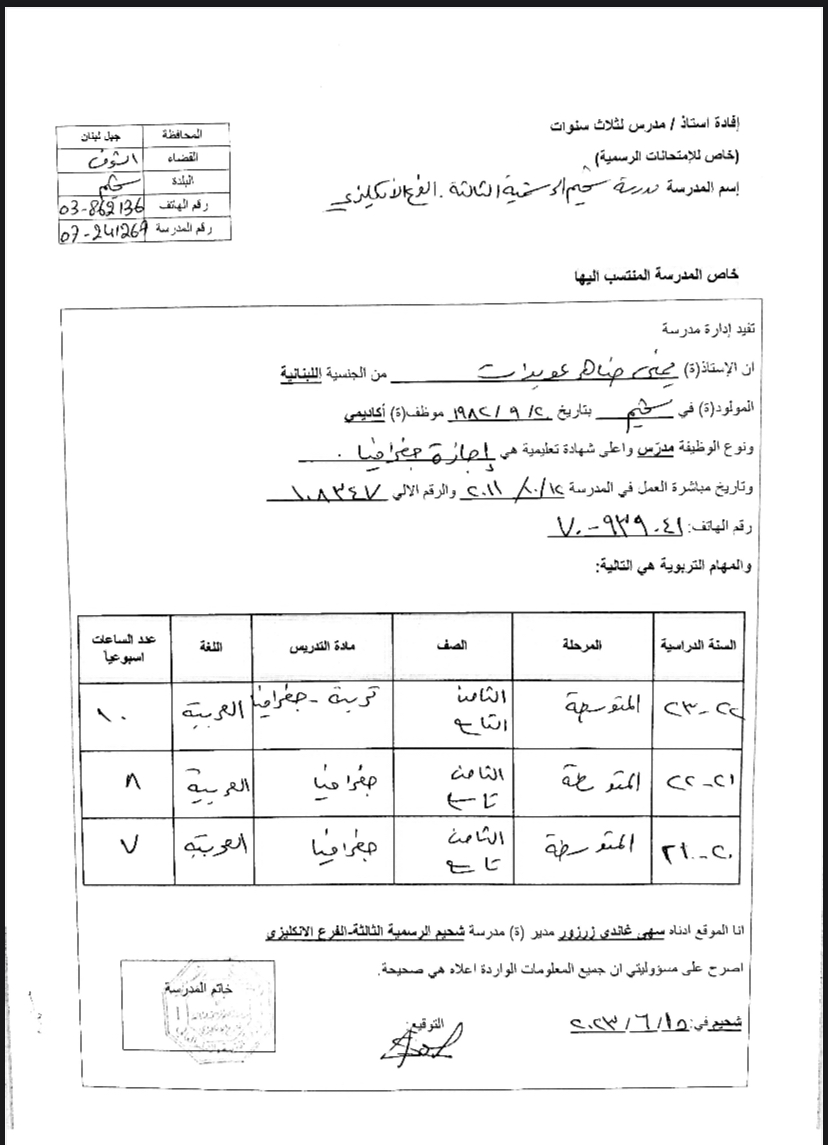 إفادة استاذ / مدرس لثلاث سنوات
(خاص للإمتحانات الرسمية)
إسم المدرسة مدرسة شحيم الرسمية الثالثة . الفرع الانكليزي
المحافظة جبل لبنان
القضاء الشوف
البلدة شحيم
رقم الهاتف 03-862136
رقم المدرسة 07-241269
خاص المدرسة المنتسب اليها
تفيد إدارة مدرسة
ان الإستاذ(ة) يحيى ضاهر عويدات من الجنسية اللبنانية
المولود(ة) في شحيم بتاريخ ٢٠/ ٩ /١٩٨٢ موظف(ة) أكاديمي
ونوع الوظيفة مدرّس واعلى شهادة تعليمية هي إجازة جغرافيا .
وتاريخ مباشرة العمل في المدرسة ١٢/١٠/ ٢٠١١ والرقم الالي ١٠٨٣٤٧
رقم الهاتف: ٧٠-٩٣٩٠٤١
والمهام التربوية هي التالية:
السنة الدراسية المرحلة الصف مادة التدريس اللغة عدد الساعات اسبوعياً
٢٢-٢٣ المتوسطة الثامن التاسع تربية - جغرافيا العربية ١٠
٢١-٢٢ المتوسطة الثامن تاسع جغرافيا العربية ٨
٢٠-٢١ المتوسطة الثامن تاسع جغرافيا العربية ٧
انا الموقع ادناه سهى غاندي زرزور مدير (ة) مدرسة شحيم الرسمية الثالثة-الفرع الانكليزي
اصرح على مسؤوليتي ان جميع المعلومات الواردة اعلاه هي صحيحة.
خاتم المدرسة
شحيم في: ١٥/ ٦ /٢٠٢٣
التوقيع: